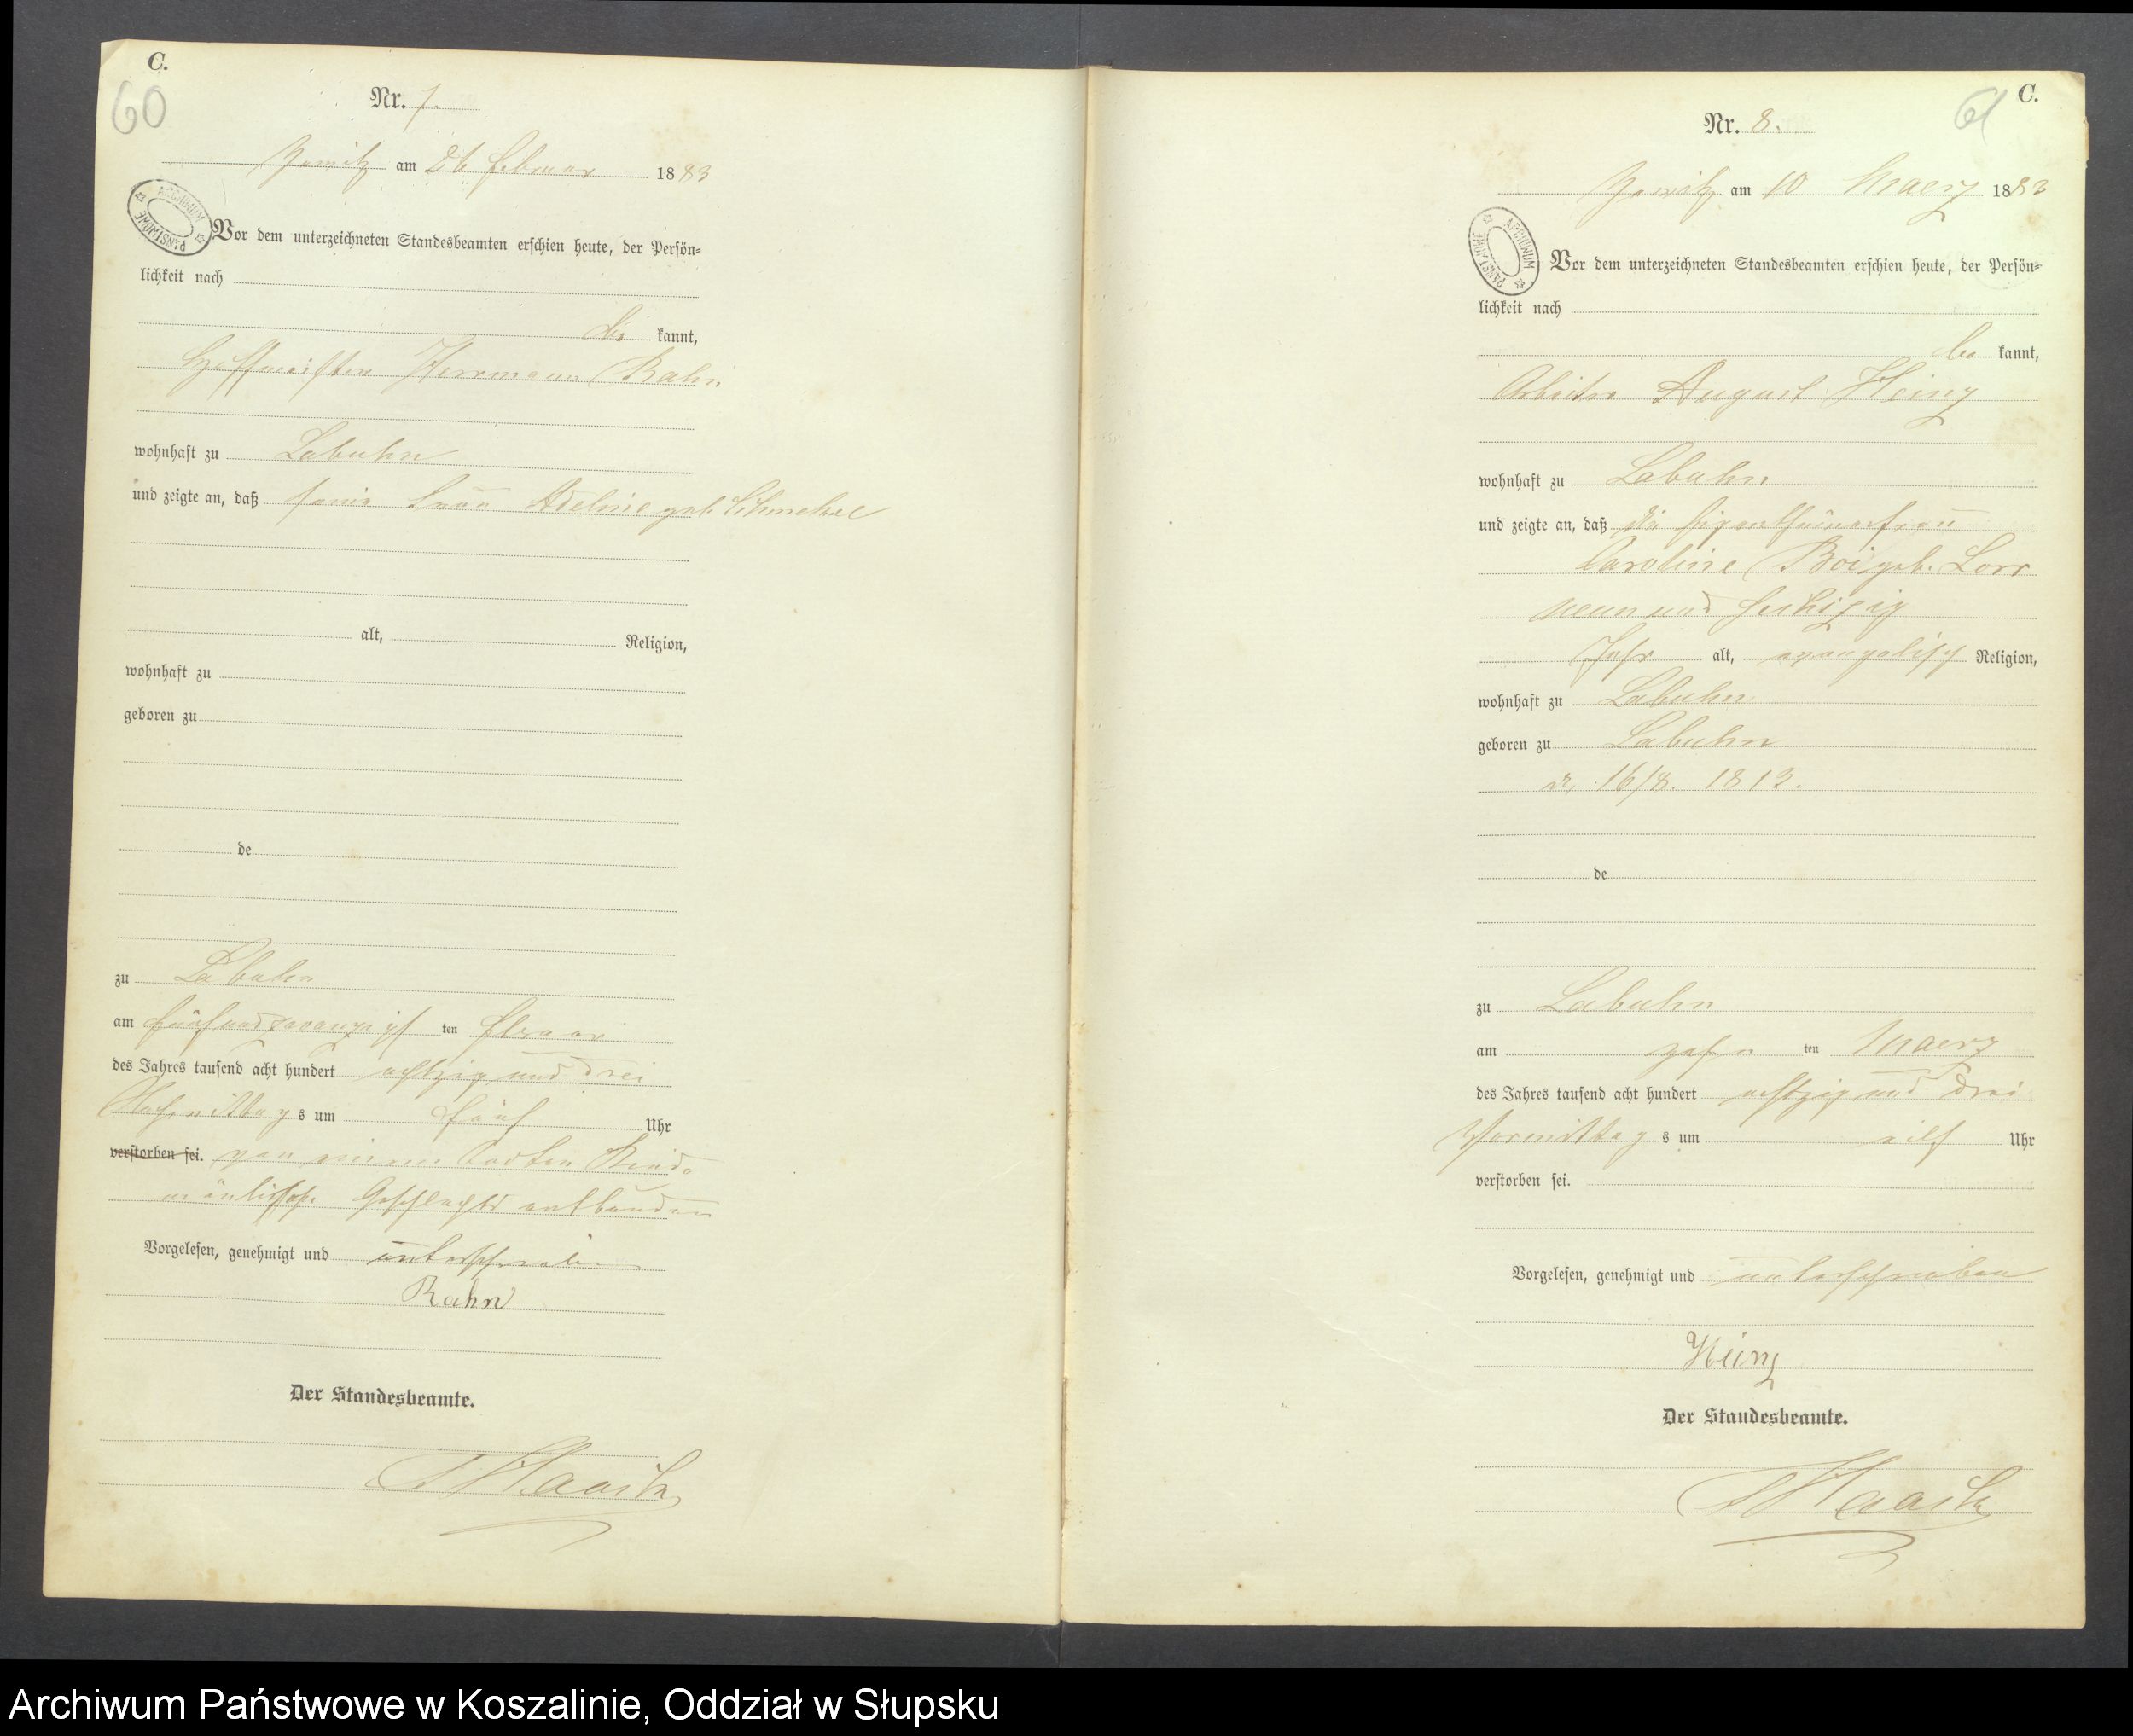 C.
60
Nr. 7.
Jassitz am 26 Februar 1883
ARCHIWUM PAŃSTWOWE
Vor dem unterzeichneten Standesbeamten erschien heute, der Persön=
lichkeit nach
be kannt,
Hoffmeister Herrmann Rahn
wohnhaft zu Labuhn
und zeigte an, daß seine Frau Adeline geb.
alt, Religion,
wohnhaft zu
geboren zu
de
zu Labuhn
am fünfundzwanzigsten Februar
des Jahres tausend acht hundert achtzig und drei
Nachmittags um fünf Uhr
verstorben sei. von einem todten Kinde
Geschlechts entbunden
Vorgelesen, genehmigt und unterschrieben
Rahn
Der Standesbeamte.
C.
61
Nr. 8.
Jassitz am 10 Maerz 1883
ARCHIWUM PAŃSTWOWE
Vor dem unterzeichneten Standesbeamten erschien heute, der Persön=
lichkeit nach
be kannt,
Arbeiter August Heinz
wohnhaft zu Labuhn
und zeigte an, daß die Eigenthümerfrau
Caroline Boi geb. Lorr
neun und sechszig
Jahr alt, evangelisch Religion,
wohnhaft zu Labuhn
geboren zu Labuhn
16/8. 1813.
de
zu Labuhn
am zehnten Maerz
des Jahres tausend acht hundert achtzig und drei
Vormittags um elf Uhr
verstorben sei.
Vorgelesen, genehmigt und unterschrieben
Heinz
Der Standesbeamte.
Archiwum Państwowe w Koszalinie, Oddział w Słupsku